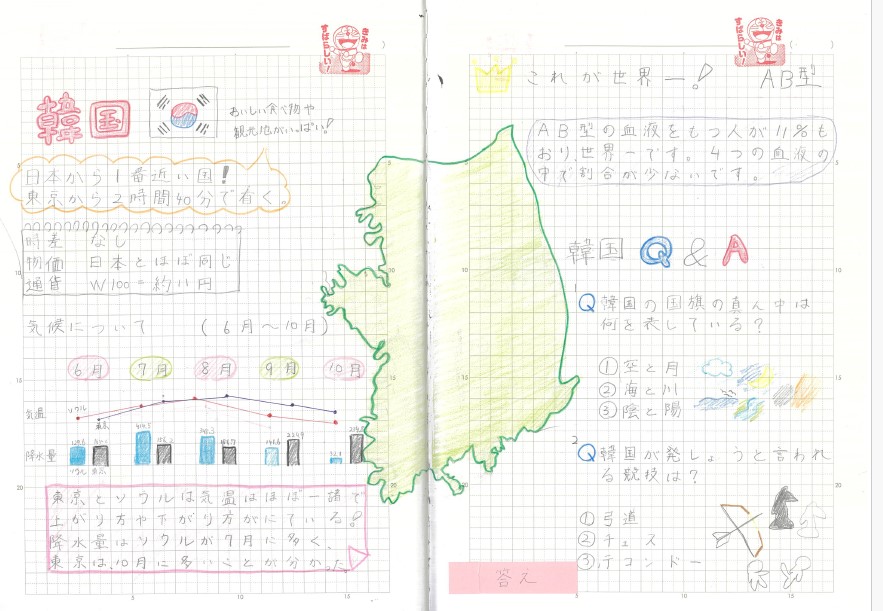 きみは
すばらしい!
韓国
おいしい食べ物や
観光地がいっぱい!
日本から1番近い国!
東京から2時間40分で着く。
時差 なし
物価 日本とほぼ同じ
通貨 W100=約11円
気候について (6月〜10月)
6月 7月 8月 9月 10月
気温
ソウル
東京
降水量
ソウル 東京
東京とソウルは気温はほぼ一緒で
上がり方や下がり方がにている!
降水量はソウルが7月に多く、
東京は、10月に多いことが分かった。
きみは
すばらしい!
これが世界一! AB型
AB型の血液をもつ人が11%も
おり、世界一です。4つの血液の
中で割合が少ないです。
韓国 Q & A
1
Q 韓国の国旗の真ん中は
何を表している?
①空と月
②海と川
③陰と陽
2
Q 韓国が発しょうと言われ
る競技は?
①弓道
②チェス
③テコンドー
答え